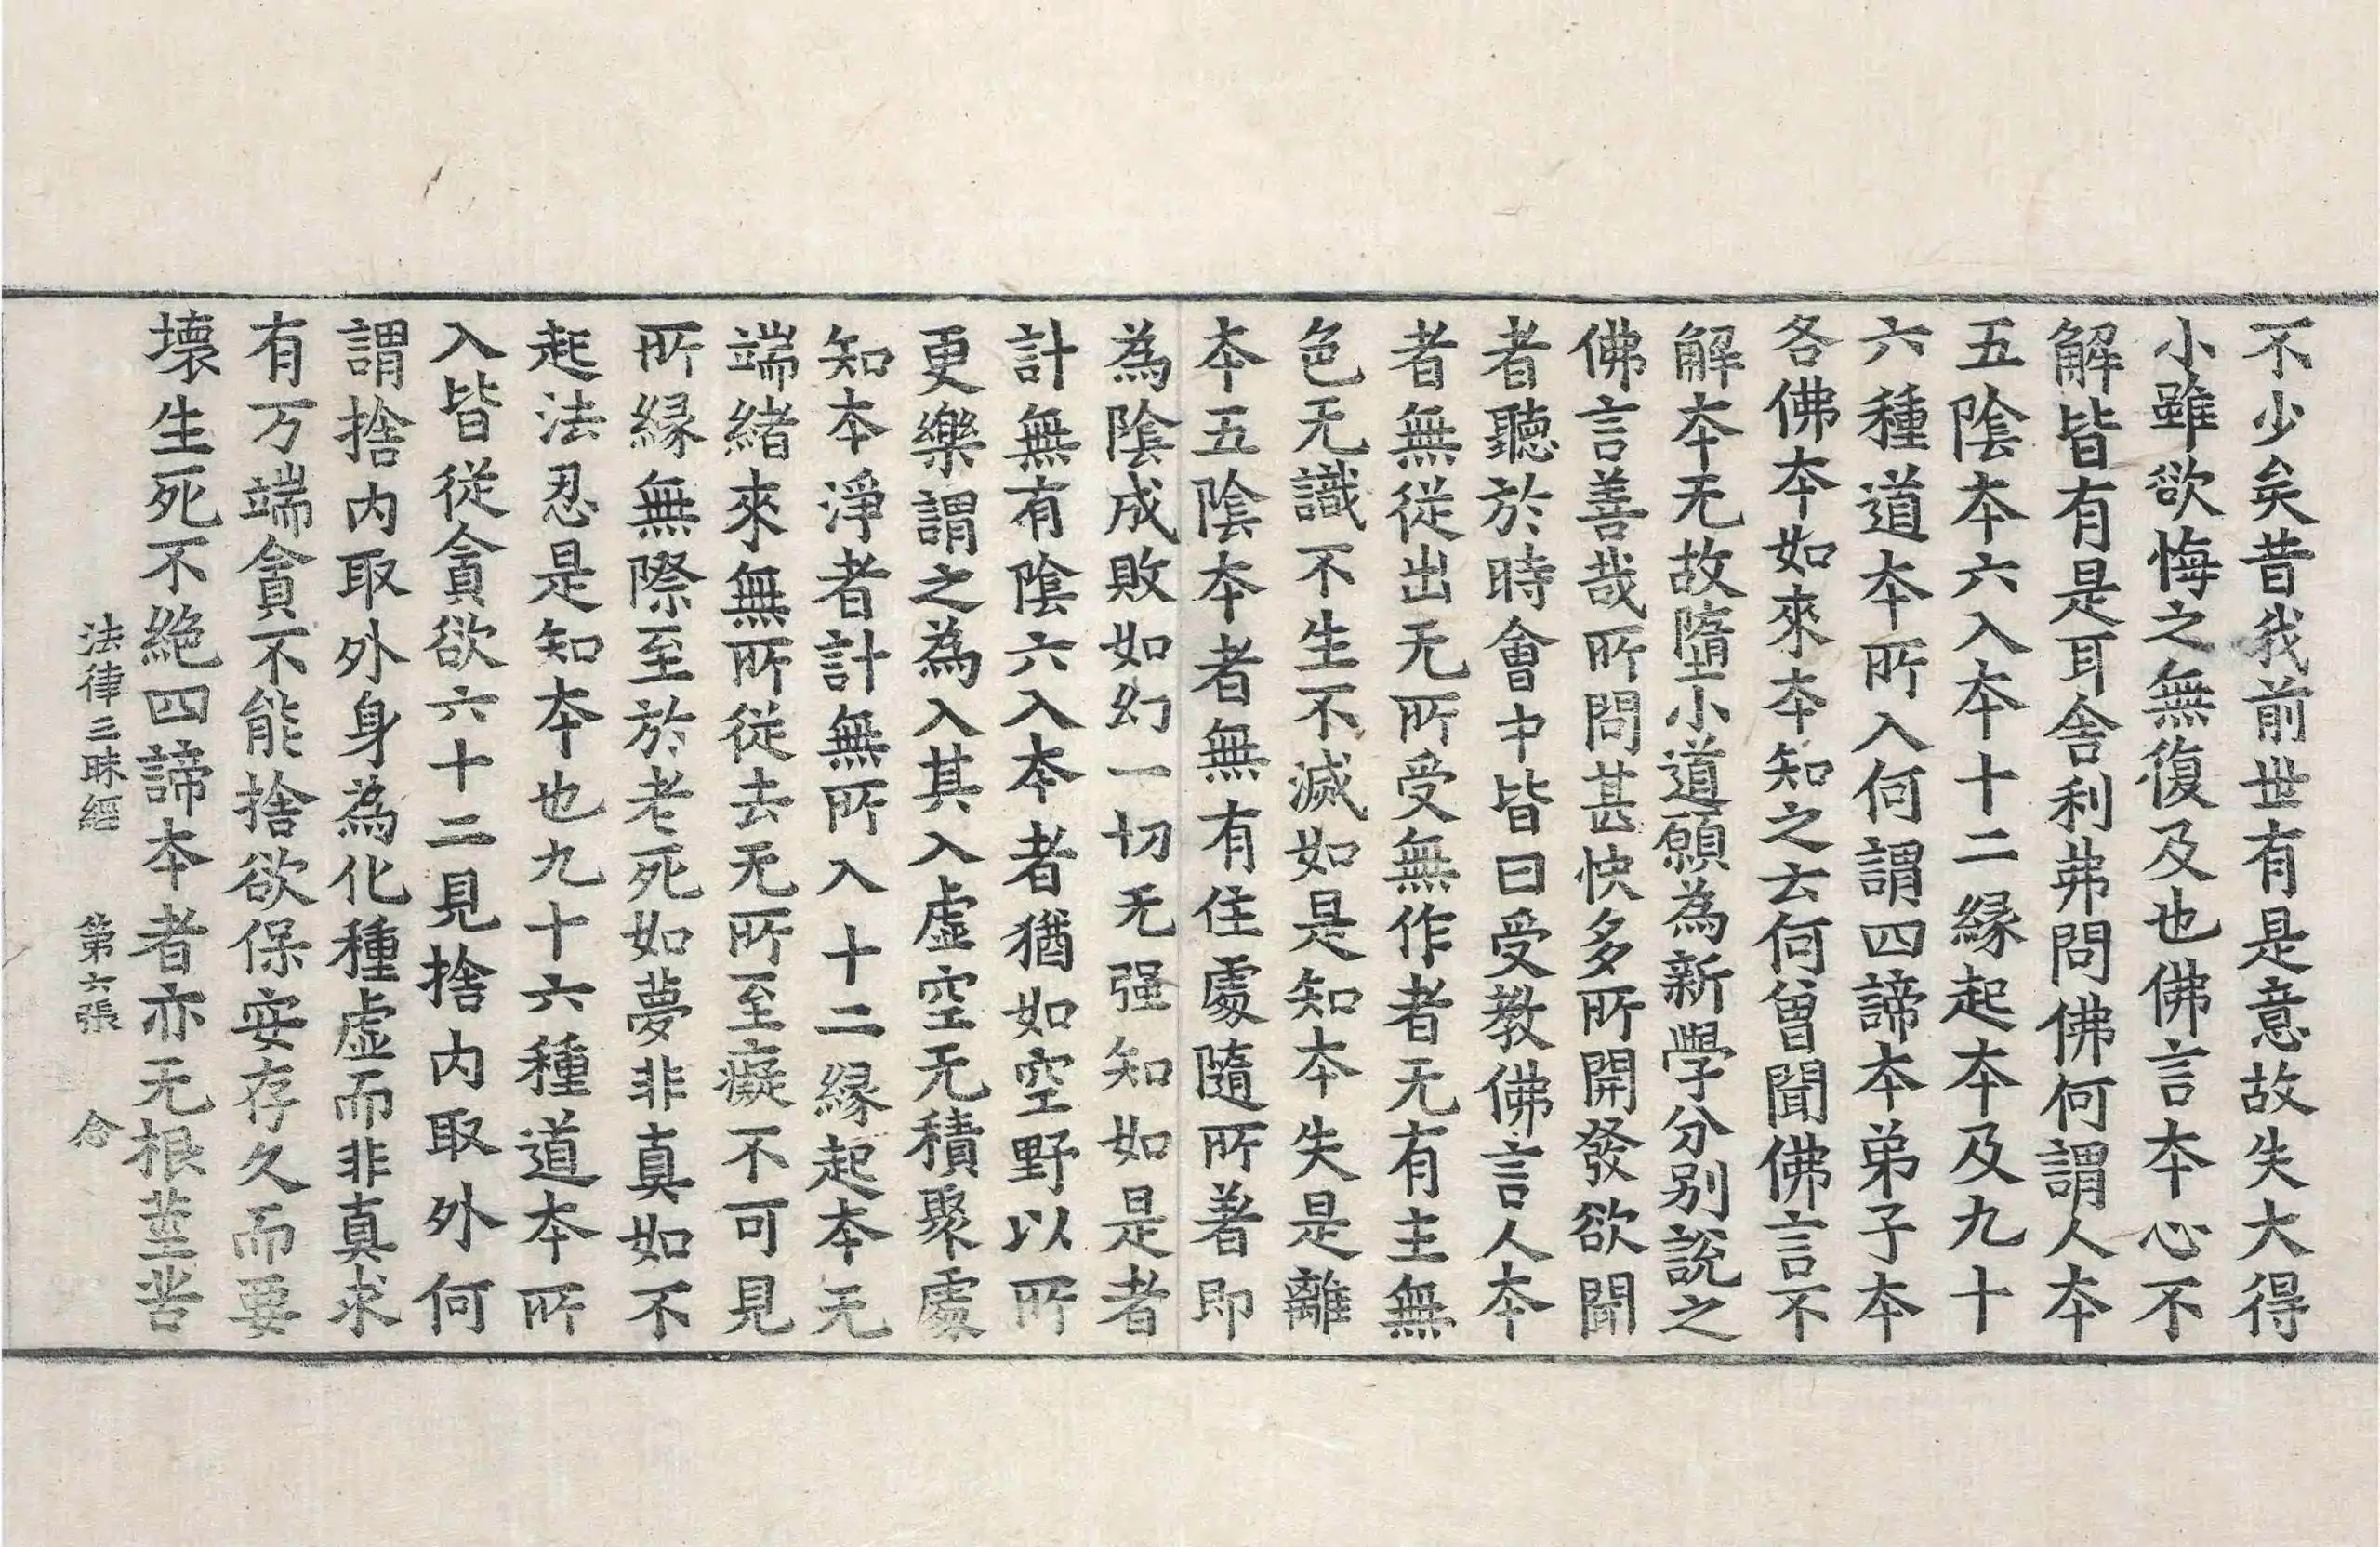 不少矣昔我前世有是意故失大得
小雖欲悔之無復及也佛言本心不
解皆有是耳舎利弗問佛何謂人本
五隂本六入本十二縁起本及九十
六種道本所入何謂四諦本弟子本
各佛本如來本知之云何曾聞佛言不
解本无故墮小道願為新學分別說之
佛言善哉所問甚快多所開發欲聞
者聽於時會中皆曰受教佛言人本
者無從出无所受無作者无有主無
色无識不生不滅如是知本失是離
本五隂本者無有住處隨所著即
為隂成敗如幻一切无强知如是者
計無有隂六入本者猶如空野以所
更樂謂之為入其入虛空无積聚處
知本淨者計無所入十二縁起本无
端緒來無所從去无所至癡不可見
所縁無際至於老死如夢非真如不
起法忍是知本也九十六種道本所
入皆從貪欲六十二見捨内取外何
謂捨内取外身為化種虛而非真求
有万端貪不能捨欲保安存久而要
壞生死不絶四諦本者亦无根莖苦
法律三昧經 第六張 念